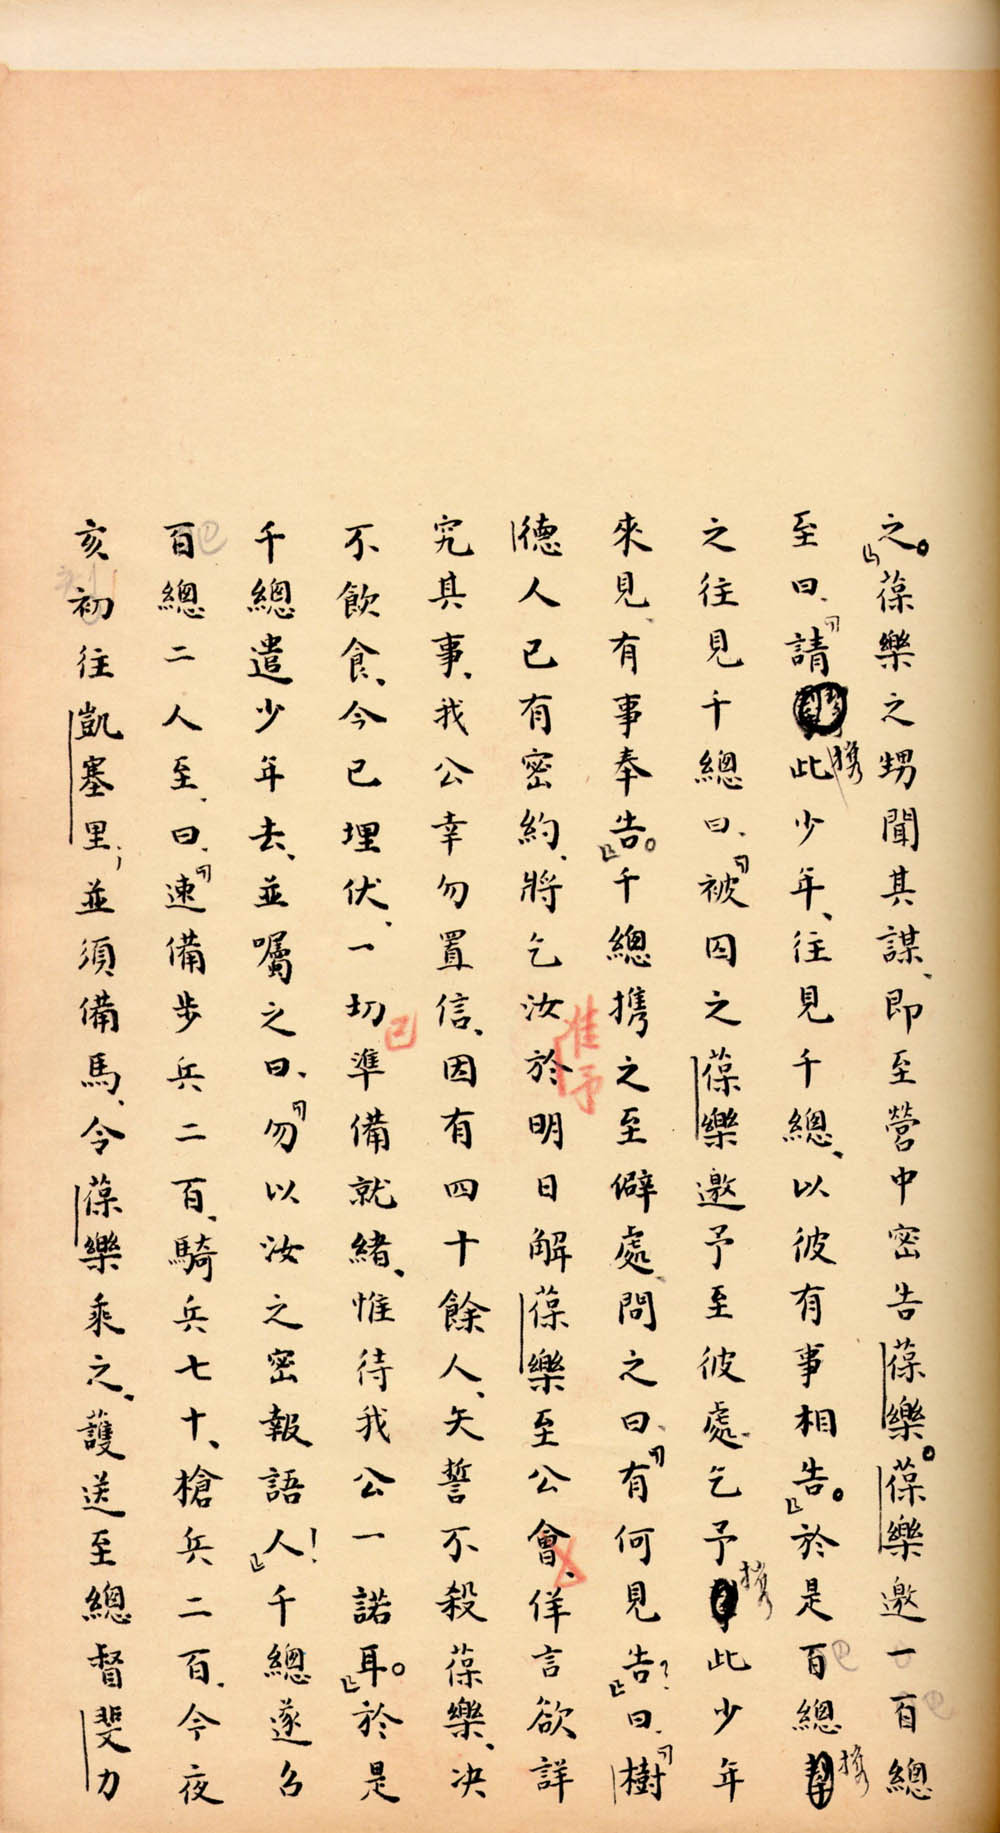 之。」葆樂之甥聞其謀、即至營中密告葆樂。葆樂邀一百總
至曰、「請攜此少年、往見千總、以彼有事相告。」於是百總攜
之往見千總曰、「被囚之葆樂邀予至彼處、乞予攜此少年
來見、有事奉告。」千總攜之至僻處、問之曰、「有何見告?」曰、「樹
德人已有密約、將乞汝於明日解葆樂至公會、佯言欲詳
究其事、我公幸勿置信、因有四十餘人、矢誓不殺葆樂、决
不飲食、今已埋伏、一切準備就緒、惟待我公一諾耳。」於是
千總遣少年去、並囑之曰、「勿以汝之密報語人!」千總遂召
百總二人至、曰、「速備步兵二百、騎兵七十、槍兵二百、今夜
亥初往凱塞里;並須備馬、令葆樂乘之、護送至總督斐力
准予
已